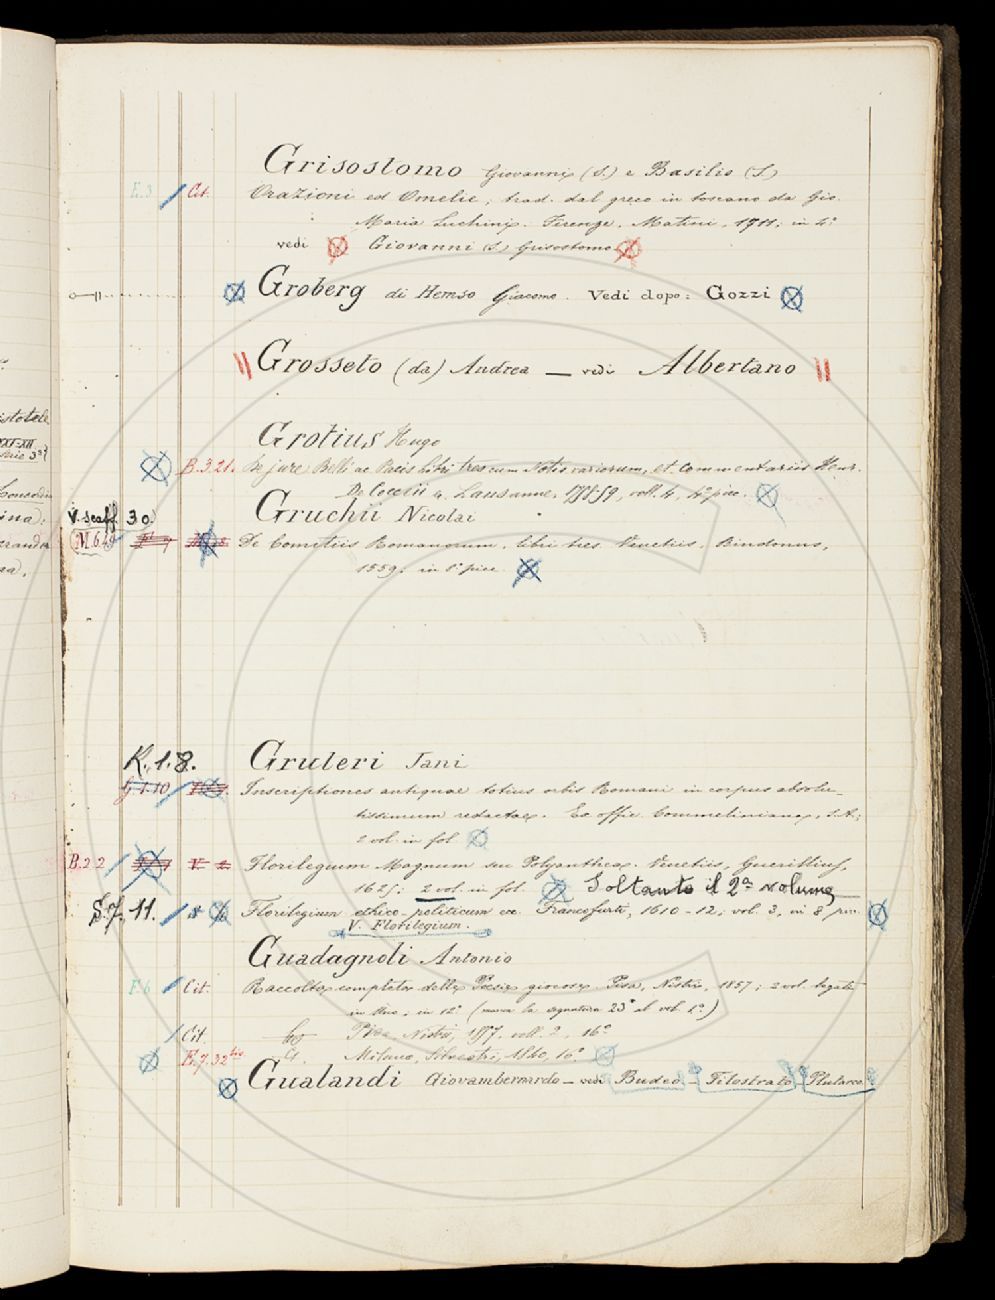 Grisostomo Giovanni (S.) e Basilio (S.)
E.3 Cit. Orazioni ed Omelie, trad. dal greco in toscano da Gio.
Maria Luchini. Firenze, Matini, 1711; in 4°
vedi Giovanni (S.) Grisostomo
Groberg di Hemso Giacomo. Vedi dopo: Gozzi
Grosseto (da) Andrea — vedi Albertano
Grotius Hugo
B.3.21. De jure Belli ac Pacis libri tres cum Notis variorum, et commentariis Henr.
De Cocceii a. Lausanne, voll. 4, 4° picc.
Gruchii Nicolai
V. scaff. 30
De Comitiis Romanorum, libri tres. Venetiis, Bindonus,
1559. in 8° picc.
K.1.8. Gruteri Jani
G 1.10 Inscriptiones antiquae totius orbis Romani in corpus absolu-
tissimum redactae. Ex offic. Commeliniana, s.A.;
2 vol. in fol.
B.2.2 Florilegium Magnum seu Polyanthea. Venetiis, Guerillius,
2 vol. in fol. Soltanto il 2° volume
S.7.11. Florilegium ethico-politicum ec. Francofurti, 1610-12; vol. 3, in 8 picc.
V. Florilegium.
Guadagnoli Antonio
F.6 Cit. Raccolta completa delle Poesie giocose. Pisa, Nistri, 1857; 2 vol. legati
in uno, in 12° (manca la segnatura 23° al vol. 1°)
Cit. Pisa, Nistri, voll. 2, 16°
E.7.32 bis Milano, Silvestri, 1840, 16°
Gualandi Giovambernardo — vedi Budeo – Filostrato – Plutarco